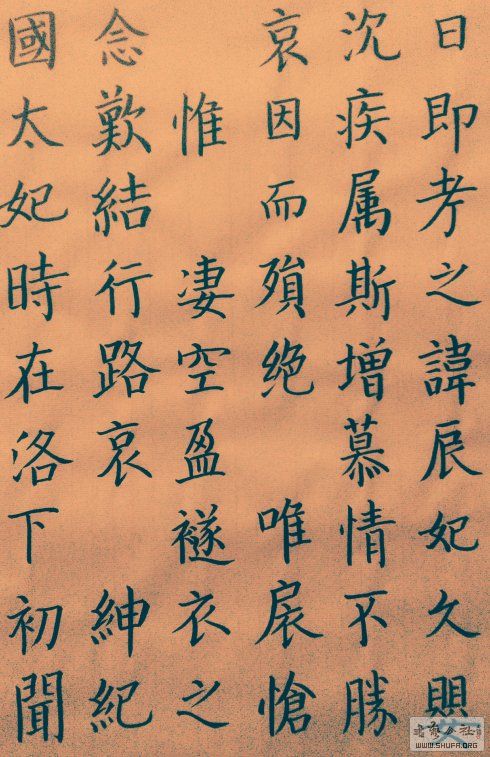 日即考之諱辰妃久
沉疾属斯增慕情不勝
哀因而殞絶 唯扆愴
惟 凄空盈襚衣之
念歎結行路哀 紳紀
國太妃時在洛下初聞
WWW.SHUFA.ORG